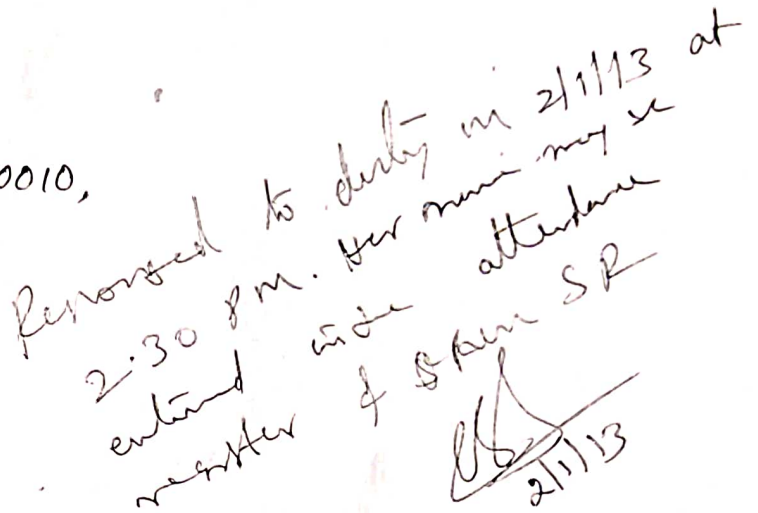 0010,
Reported to duty on 2/1/13 at
2.30 PM. Her name may be
entered in the attendance
register & open SR
2/1/13